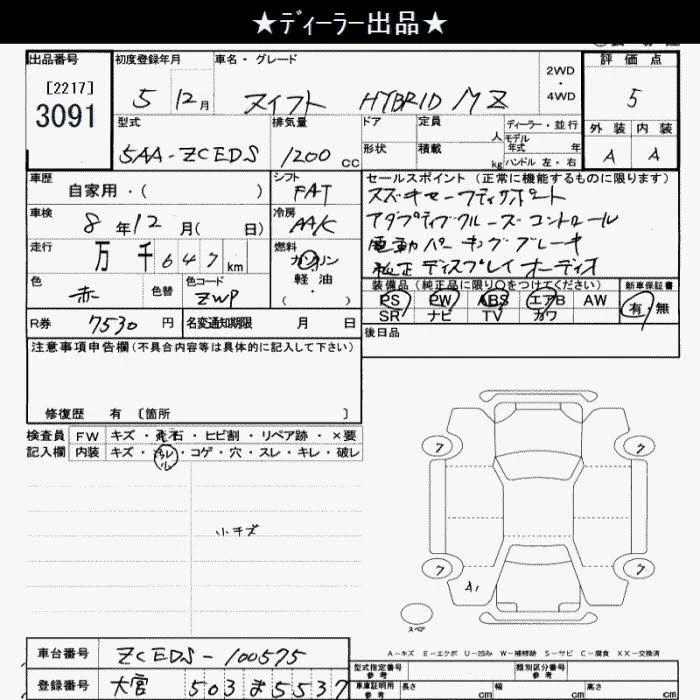 ★ディーラー出品★
出品番号
[2217]
3091
初度登録年月
5 12月
車名・グレード
スイフト HYBRID MZ
2WD
・
4WD
評価点
5
外装 内装
A A
型式
5AA-ZCEDS
排気量
1200 CC
ドア
形状
定員 人
積載 kg
ディーラー・並行
モデル年式 年
ハンドル 左・右
車歴
自家用・( )
シフト
FAT
車検
8年12月( 日)
冷房
AAC
走行
万千647km
燃料
ガソリン
軽油
( )
色
赤
色替
色コード
ZWP
R券 7530円
名変通知期限 月 日
セールスポイント (正常に機能するものに限ります)
スズキセーフティサポート
アダプティブクルーズコントロール
電動パーキングブレーキ
純正ディスプレイオーディオ
装備品(純正品に限り○をつけてください)
PS PW ABS エアB AW
SR ナビ TV カワ
新車保証書
有・無
後日品
注意事項申告欄(不具合内容等は具体的に記入して下さい)
修復歴 有 〔箇所 〕
検査員記入欄
FW キズ・飛石・ヒビ割・リペア跡・×要
内装 キズ・ヨゴレ・コゲ・穴・スレ・キレ・破レ
小キズ
ワ
ワ
ワ
ワ
A1
スペア
A-キズ E-エクボ U-凹み W-補修跡 S-サビ C-腐食 XX-交換済
車台番号 ZCEDS-100575
登録番号 大宮 503 ま 5537
型式指定番号 参考
類別区分番号 参考
車庫証明用 参考
長さ cm
幅 cm
高さ cm